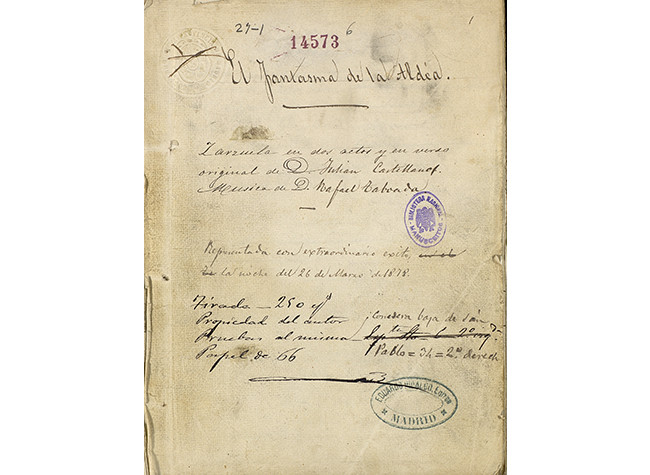 27-1
14573
6
1
El Fantasma de la Aldéa.
Zarzuela en dos actos y en verso
original de D. Julian Castellanos.
Musica de D. Rafael Taboada
BIBLIOTECA NACIONAL
MANUSCRITOS
Representada con extraordinario exito,
la noche del 26 de Marzo de 1878.
Tirada — 250 ejs
Propiedad del autor
Corredera baja de San
Pruebas al mismo
Pablo = 34 = 2º derech
Papel de 66
EDUARDO HIDALGO, Editor
MADRID